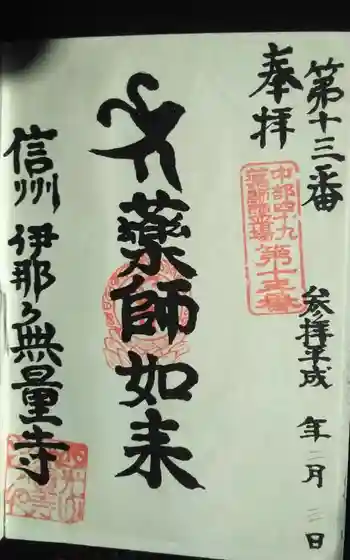 第十三番
奉拝
中部四十九
薬師霊場 第十三番
参拝平成 年 月 日
薬師如来
信州 伊那 無量寺